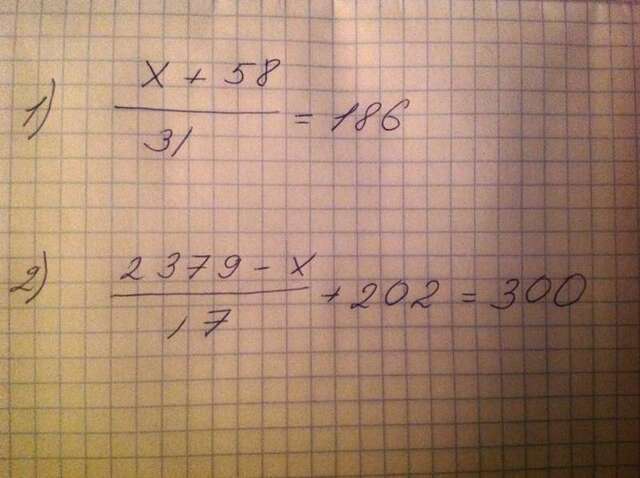 1) x + 58
31 = 186
2) 2379 - x
17 + 202 = 300